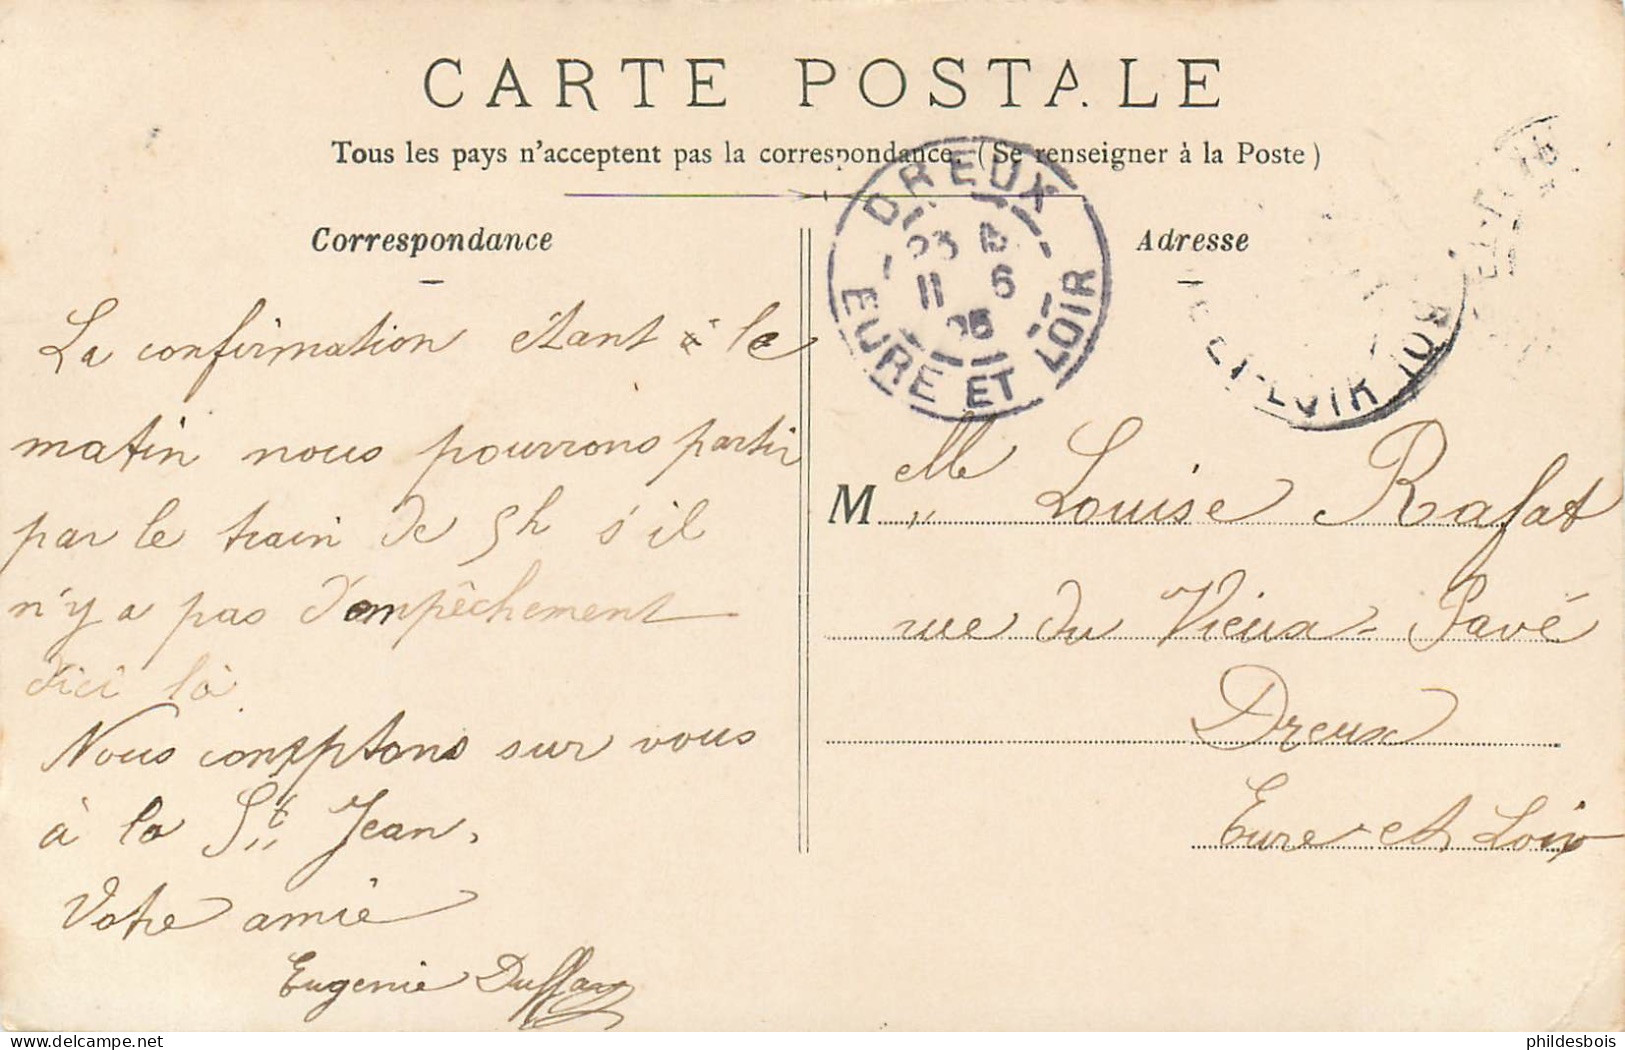 CARTE POSTALE
Tous les pays n'acceptent pas la correspondance. (Se renseigner à la Poste)
Correspondance
La confirmation étant à le
matin nous pourrons partir
par le train de 5h s'il
n'y a pas d'empêchement
d'ici là
Nous comptons sur vous
à la St Jean.
Votre amie
Eugenie
DREUX
11 6
EURE ET LOIR
Adresse
ET-LOIR
Melle Louise Rafat
rue du Vieux-Pavé
Dreux
Eure et Loir
phildesbois